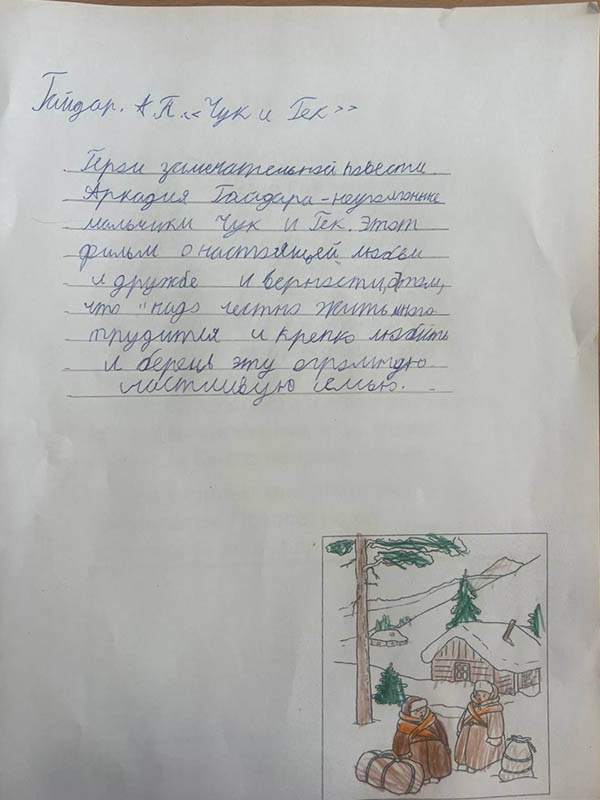 Гайдар. А.П. «Чук и Гек»
Герои замечательной повести
Аркадия Гайдара - неугомонные
мальчики Чук и Гек. Этот
фильм о настоящей любви
и дружбе и верности, о том,
что "надо честно жить много
трудится и крепко любить
и беречь эту огромную
счастливую семью.